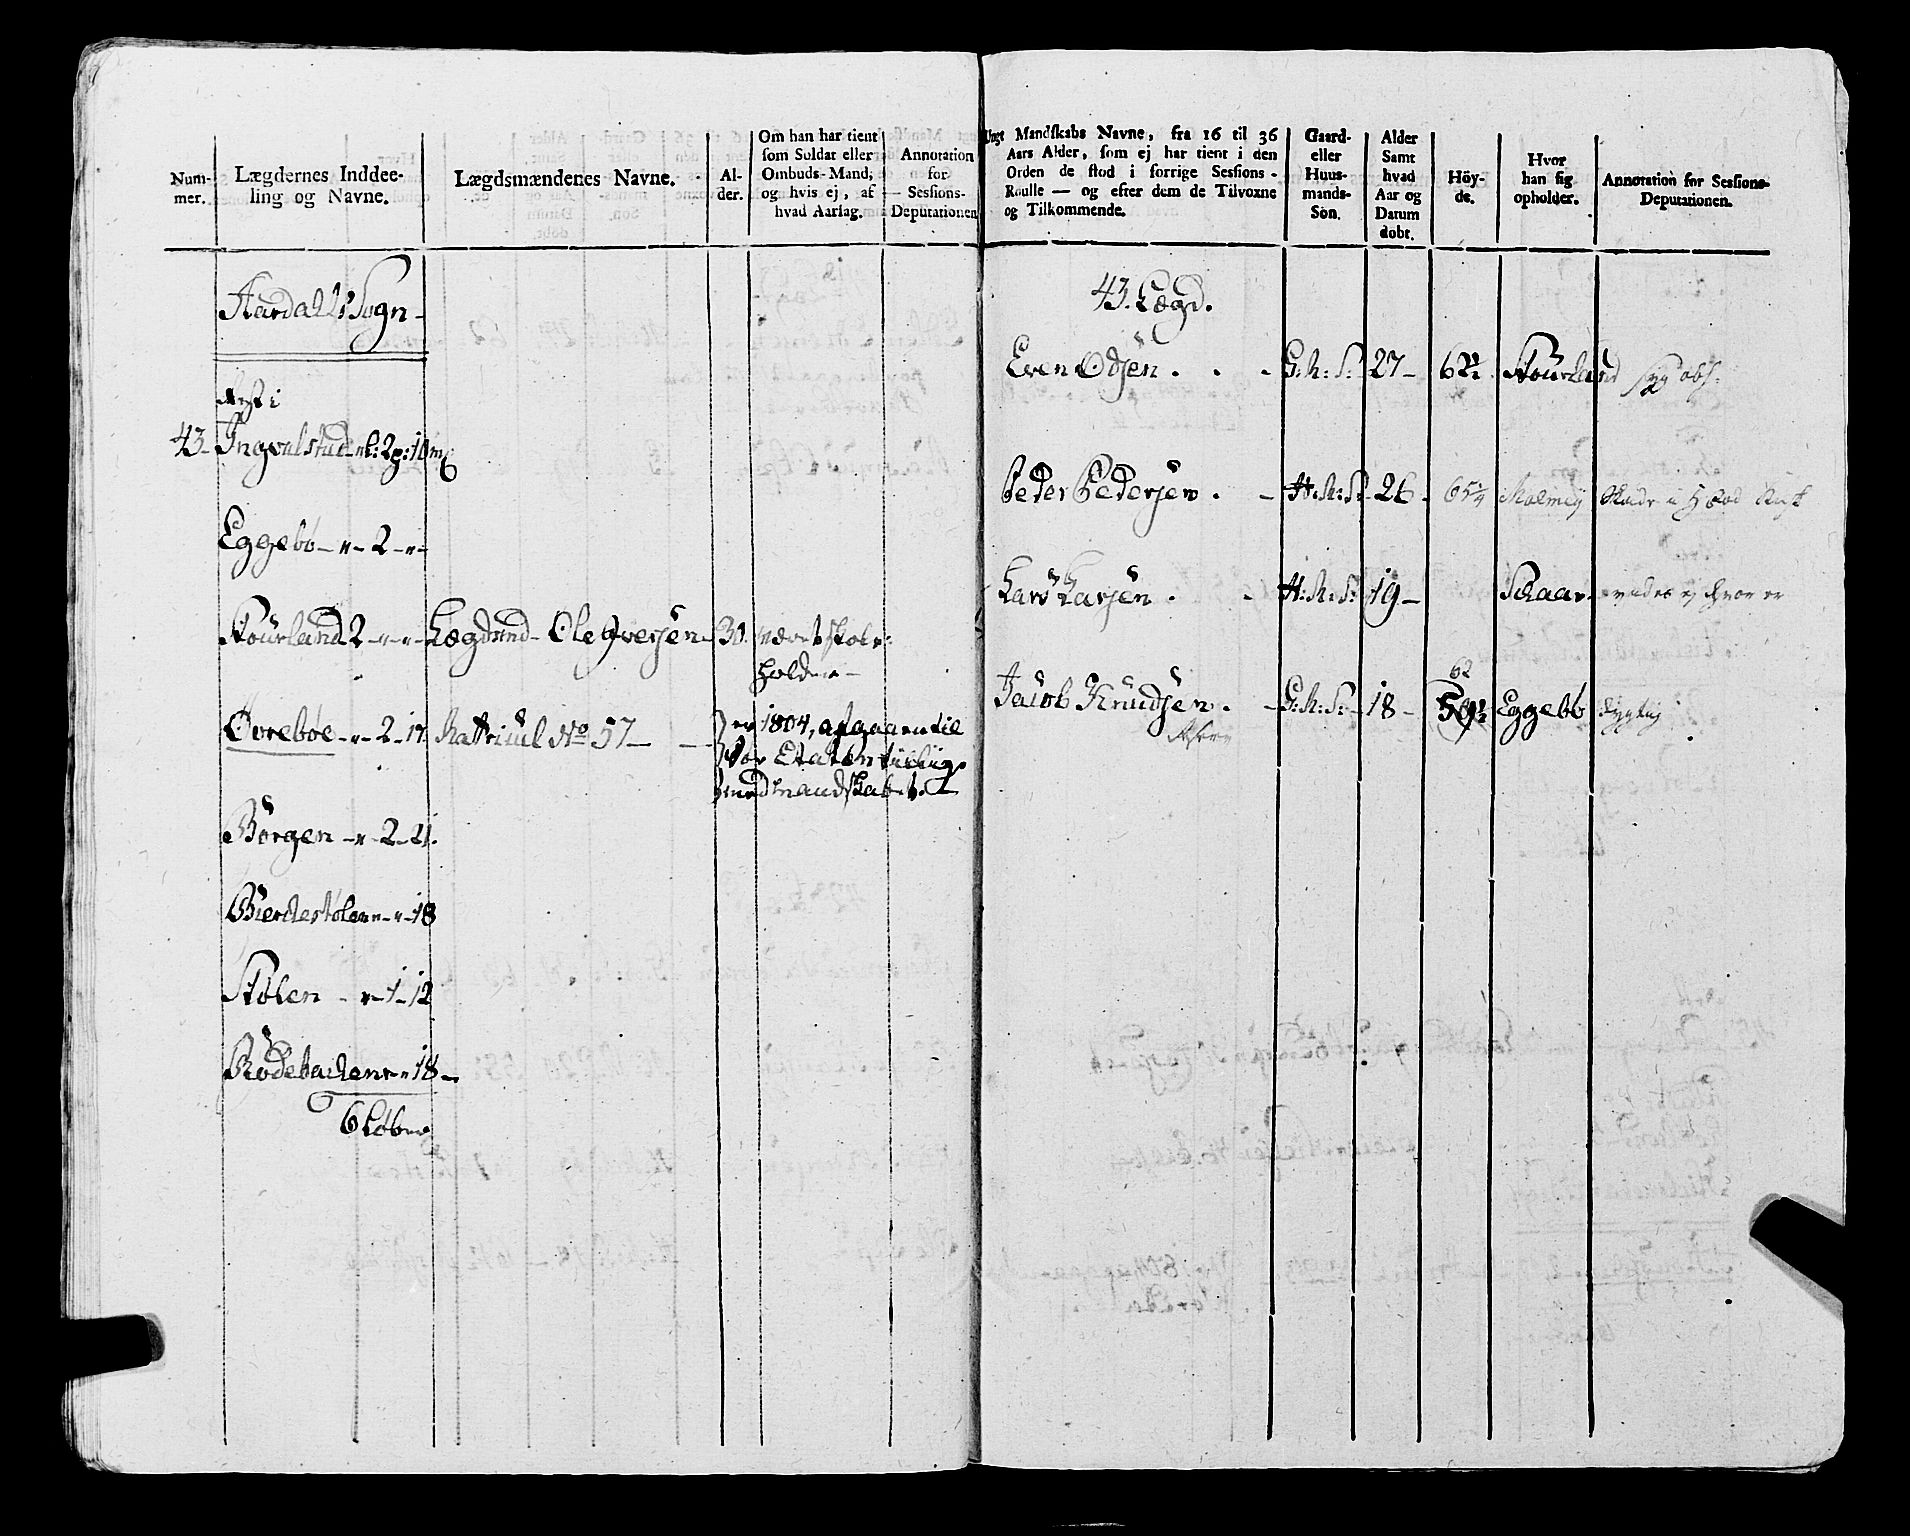 Num-
mer.
Lægdernes Inddee-
ling og Navne.
Lægdsmændenes Navne.
Al-
der.
Om han har tient
som Soldat eller
Ombuds-Mand;
og hvis ej, af
hvad Aarsag.
Annotation
for
Sessions-
Deputationen
Aardalls Sogn
43- Ingvalstad
Eggebø - " - 2 - " -
Stourland 2 - " - " - Lægdsmd- Ole Iversen 30. været skole-
holder -
Øvrebøe - " - 2 - 17. Matricul No 57 - er 1804, afgaaen til
Søe Etaten tillige
med mandskabet.
Börgen - " - 2 - 21.
- " - " - 18
Stølen - " - 1 - 12
- " - 18 -
6 Løber
Ungt Mandskabs Navne, fra 16 til 36
Aars Alder, som ej har tient i den
Orden de stod i forrige Sessions-
Roulle — og efter dem de Tilvoxne
og Tilkommende.
Gaard-
eller
Huus-
mands-
Søn.
Alder
Samt
hvad
Aar og
Datum
dobt.
Höy-
de.
Hvor
han sig
opholder.
Annotation for Sessions-
Deputationen.
43. Lægd.
Even Odsen . . . G: R: S: 27- Stourland
Peder Pedersen . - H: R: S: 26 -
Lars Larsen . - H: R: S: 19 - Skaar -
62
Jacob Knudsen . - G: R: S: - 18 - Eggebö dygtig